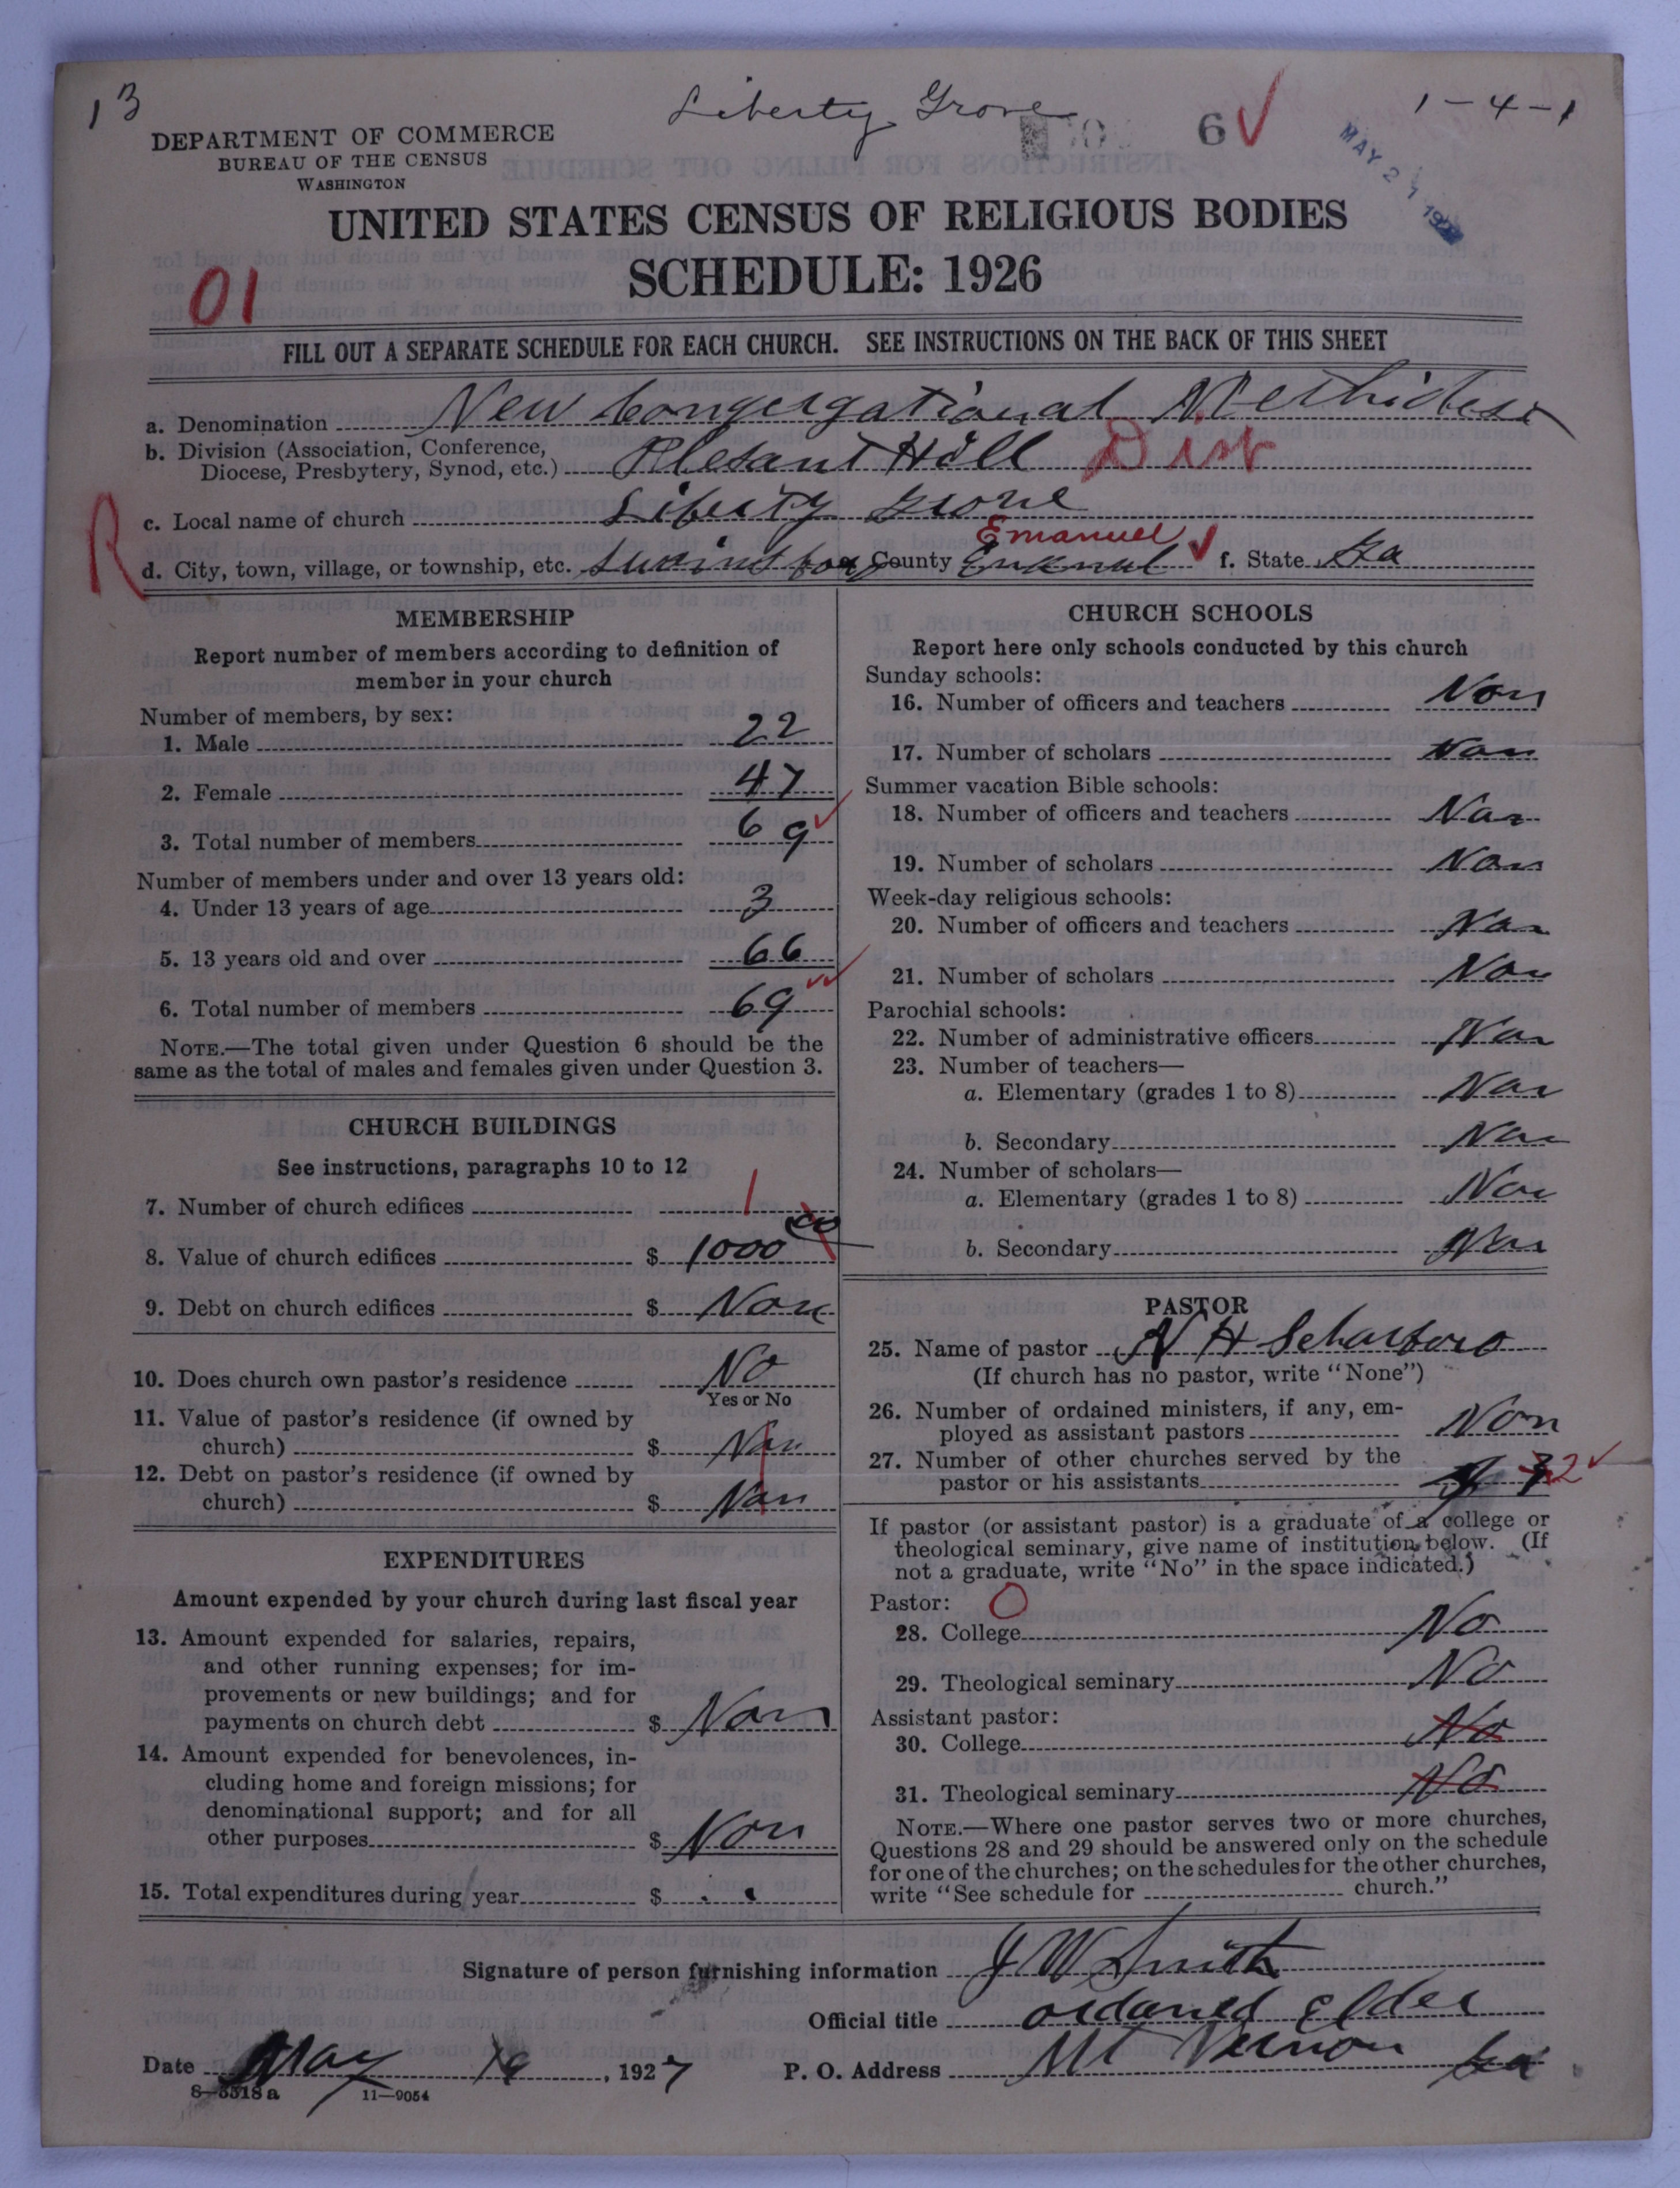 13
Liberty Grove
1-4-1
6 ✓
MAY 21 1927
DEPARTMENT OF COMMERCE
BUREAU OF THE CENSUS
WASHINGTON
UNITED STATES CENSUS OF RELIGIOUS BODIES
SCHEDULE: 1926
01
FILL OUT A SEPARATE SCHEDULE FOR EACH CHURCH. SEE INSTRUCTIONS ON THE BACK OF THIS SHEET
a. Denomination New Congergational Methidest
b. Division (Association, Conference,
Diocese, Presbytery, Synod, etc.) Plesant Hill Dist
R
c. Local name of church Liberty Grove
Emanuel ✓
d. City, town, village, or township, etc. County f. State Ga
MEMBERSHIP
Report number of members according to definition of
member in your church
Number of members, by sex:
1. Male 22
2. Female 47
3. Total number of members 69 ✓
Number of members under and over 13 years old:
4. Under 13 years of age 3
5. 13 years old and over 66
6. Total number of members 69 ✓
NOTE.—The total given under Question 6 should be the
same as the total of males and females given under Question 3.
CHURCH BUILDINGS
See instructions, paragraphs 10 to 12
7. Number of church edifices 1
8. Value of church edifices $ 1000 00
9. Debt on church edifices $ None
10. Does church own pastor's residence No
Yes or No
11. Value of pastor's residence (if owned by
church) $ Non
12. Debt on pastor's residence (if owned by
church) $ Non
EXPENDITURES
Amount expended by your church during last fiscal year
13. Amount expended for salaries, repairs,
and other running expenses; for im-
provements or new buildings; and for
payments on church debt $ Non
14. Amount expended for benevolences, in-
cluding home and foreign missions; for
denominational support; and for all
other purposes $ Non
15. Total expenditures during year $
CHURCH SCHOOLS
Report here only schools conducted by this church
Sunday schools:
16. Number of officers and teachers Non
17. Number of scholars Non
Summer vacation Bible schools:
18. Number of officers and teachers Non
19. Number of scholars Non
Week-day religious schools:
20. Number of officers and teachers Non
21. Number of scholars Non
Parochial schools:
22. Number of administrative officers Non
23. Number of teachers—
a. Elementary (grades 1 to 8) Non
b. Secondary Non
24. Number of scholars—
a. Elementary (grades 1 to 8) Non
b. Secondary Non
PASTOR
25. Name of pastor N H Scharboro
(If church has no pastor, write "None")
26. Number of ordained ministers, if any, em-
ployed as assistant pastors Non
27. Number of other churches served by the
pastor or his assistants 2 ✓
If pastor (or assistant pastor) is a graduate of a college or
theological seminary, give name of institution below. (If
not a graduate, write "No" in the space indicated.)
Pastor: 0
28. College No
29. Theological seminary No
Assistant pastor:
30. College No
31. Theological seminary No
NOTE.—Where one pastor serves two or more churches,
Questions 28 and 29 should be answered only on the schedule
for one of the churches; on the schedules for the other churches,
write "See schedule for church."
Signature of person furnishing information J W Smith
Official title ordaned Elder
Date May 19, 1927 P. O. Address Mt Vernon Ga
8—5518 a 11—9054